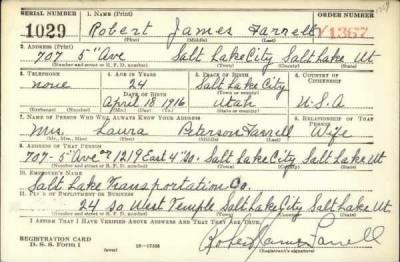 SERIAL NUMBER
1. NAME (Print)
ORDER NUMBER
1029
Robert James Farrell
V1367
(First) (Middle) (Last)
2. ADDRESS (Print)
707 5" Ave Salt Lake City Salt Lake Ut.
(Number and street or R. F. D. number) (Town) (County) (State)
3. TELEPHONE
4. AGE IN YEARS
5. PLACE OF BIRTH
6. COUNTRY OF CITIZENSHIP
none
24
Salt Lake City
DATE OF BIRTH
(Town or county)
April 18 1916
Utah
U.S.A
(Exchange) (Number)
(Mo.) (Day) (Yr.)
(State or country)
7. NAME OF PERSON WHO WILL ALWAYS KNOW YOUR ADDRESS
8. RELATIONSHIP OF THAT PERSON
Mrs. Laura Peterson Farrell Wife
(Mr., Mrs., Miss) (First) (Middle) (Last)
9. ADDRESS OF THAT PERSON
707-5" Ave or 1219 East 4" So. Salt Lake City Salt Lake Ut
(Number and street or R. F. D. number) (Town) (County) (State)
10. EMPLOYER'S NAME
Salt Lake Transportation Co.
11. PLACE OF EMPLOYMENT OR BUSINESS
24 So West Temple Salt Lake City Salt Lake Ut.
(Number and street or R. F. D. number) (Town) (County) (State)
I AFFIRM THAT I HAVE VERIFIED ABOVE ANSWERS AND THAT THEY ARE TRUE.
REGISTRATION CARD
D. S. S. FORM 1
(over)
16-17105
Robert James Farrell
(Registrant's signature)